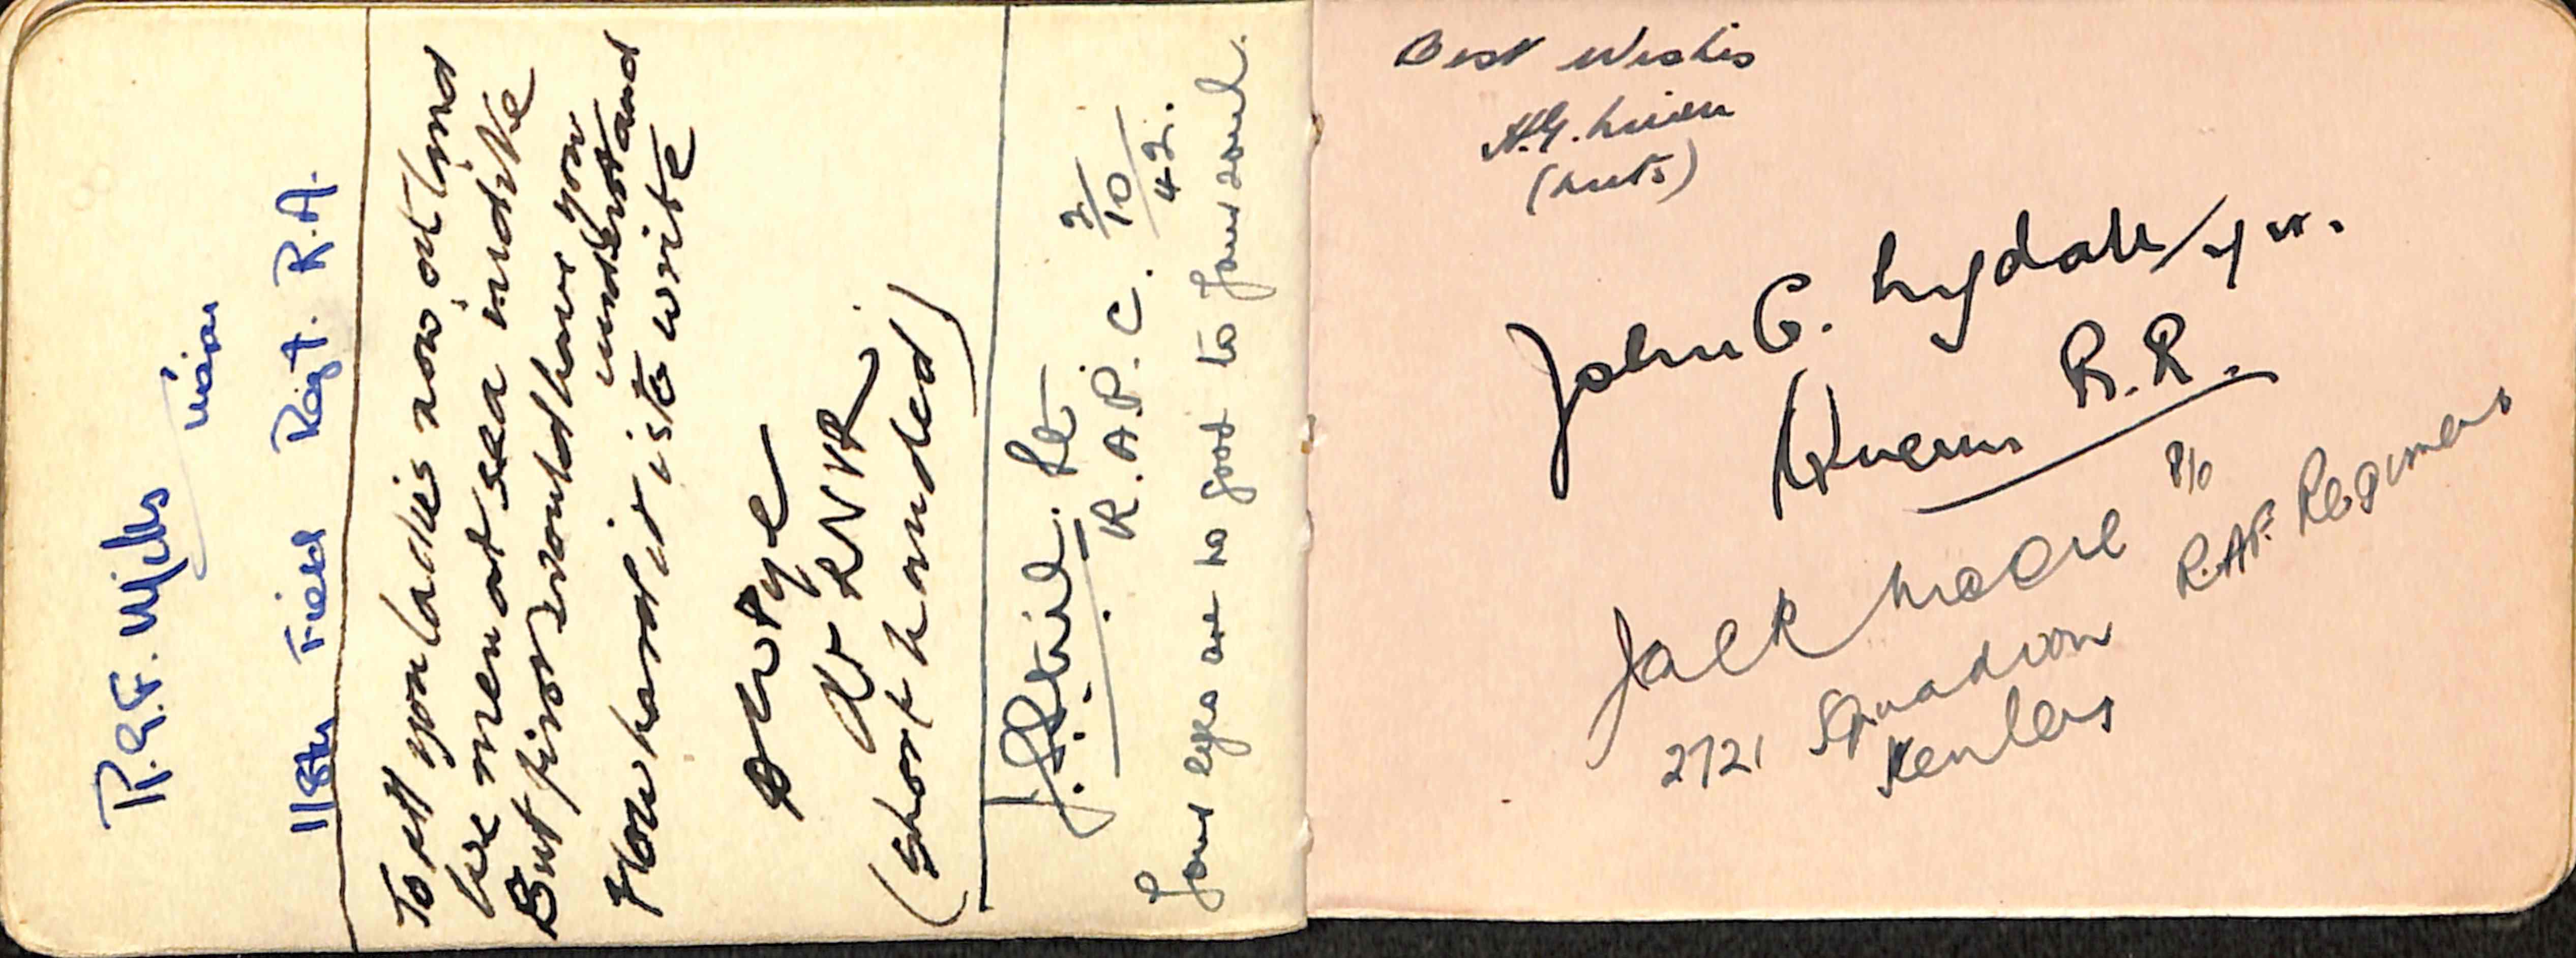 R.G.F. Mills
118th Field Regt. R.A.
To all you ladies now on land
we men at sea indite
But first would have you
understand
How hard it is to write
D C W Pye
Lt RNVR
(short handed)
Pte
R.A.P.C. 2/10/42.
Your eyes are too good to your soul.
Best Wishes
John G. Lydall
Queens R.R.
Jack Moore P/O
R.A.F. Regiment
2721 Squadron
Kenley